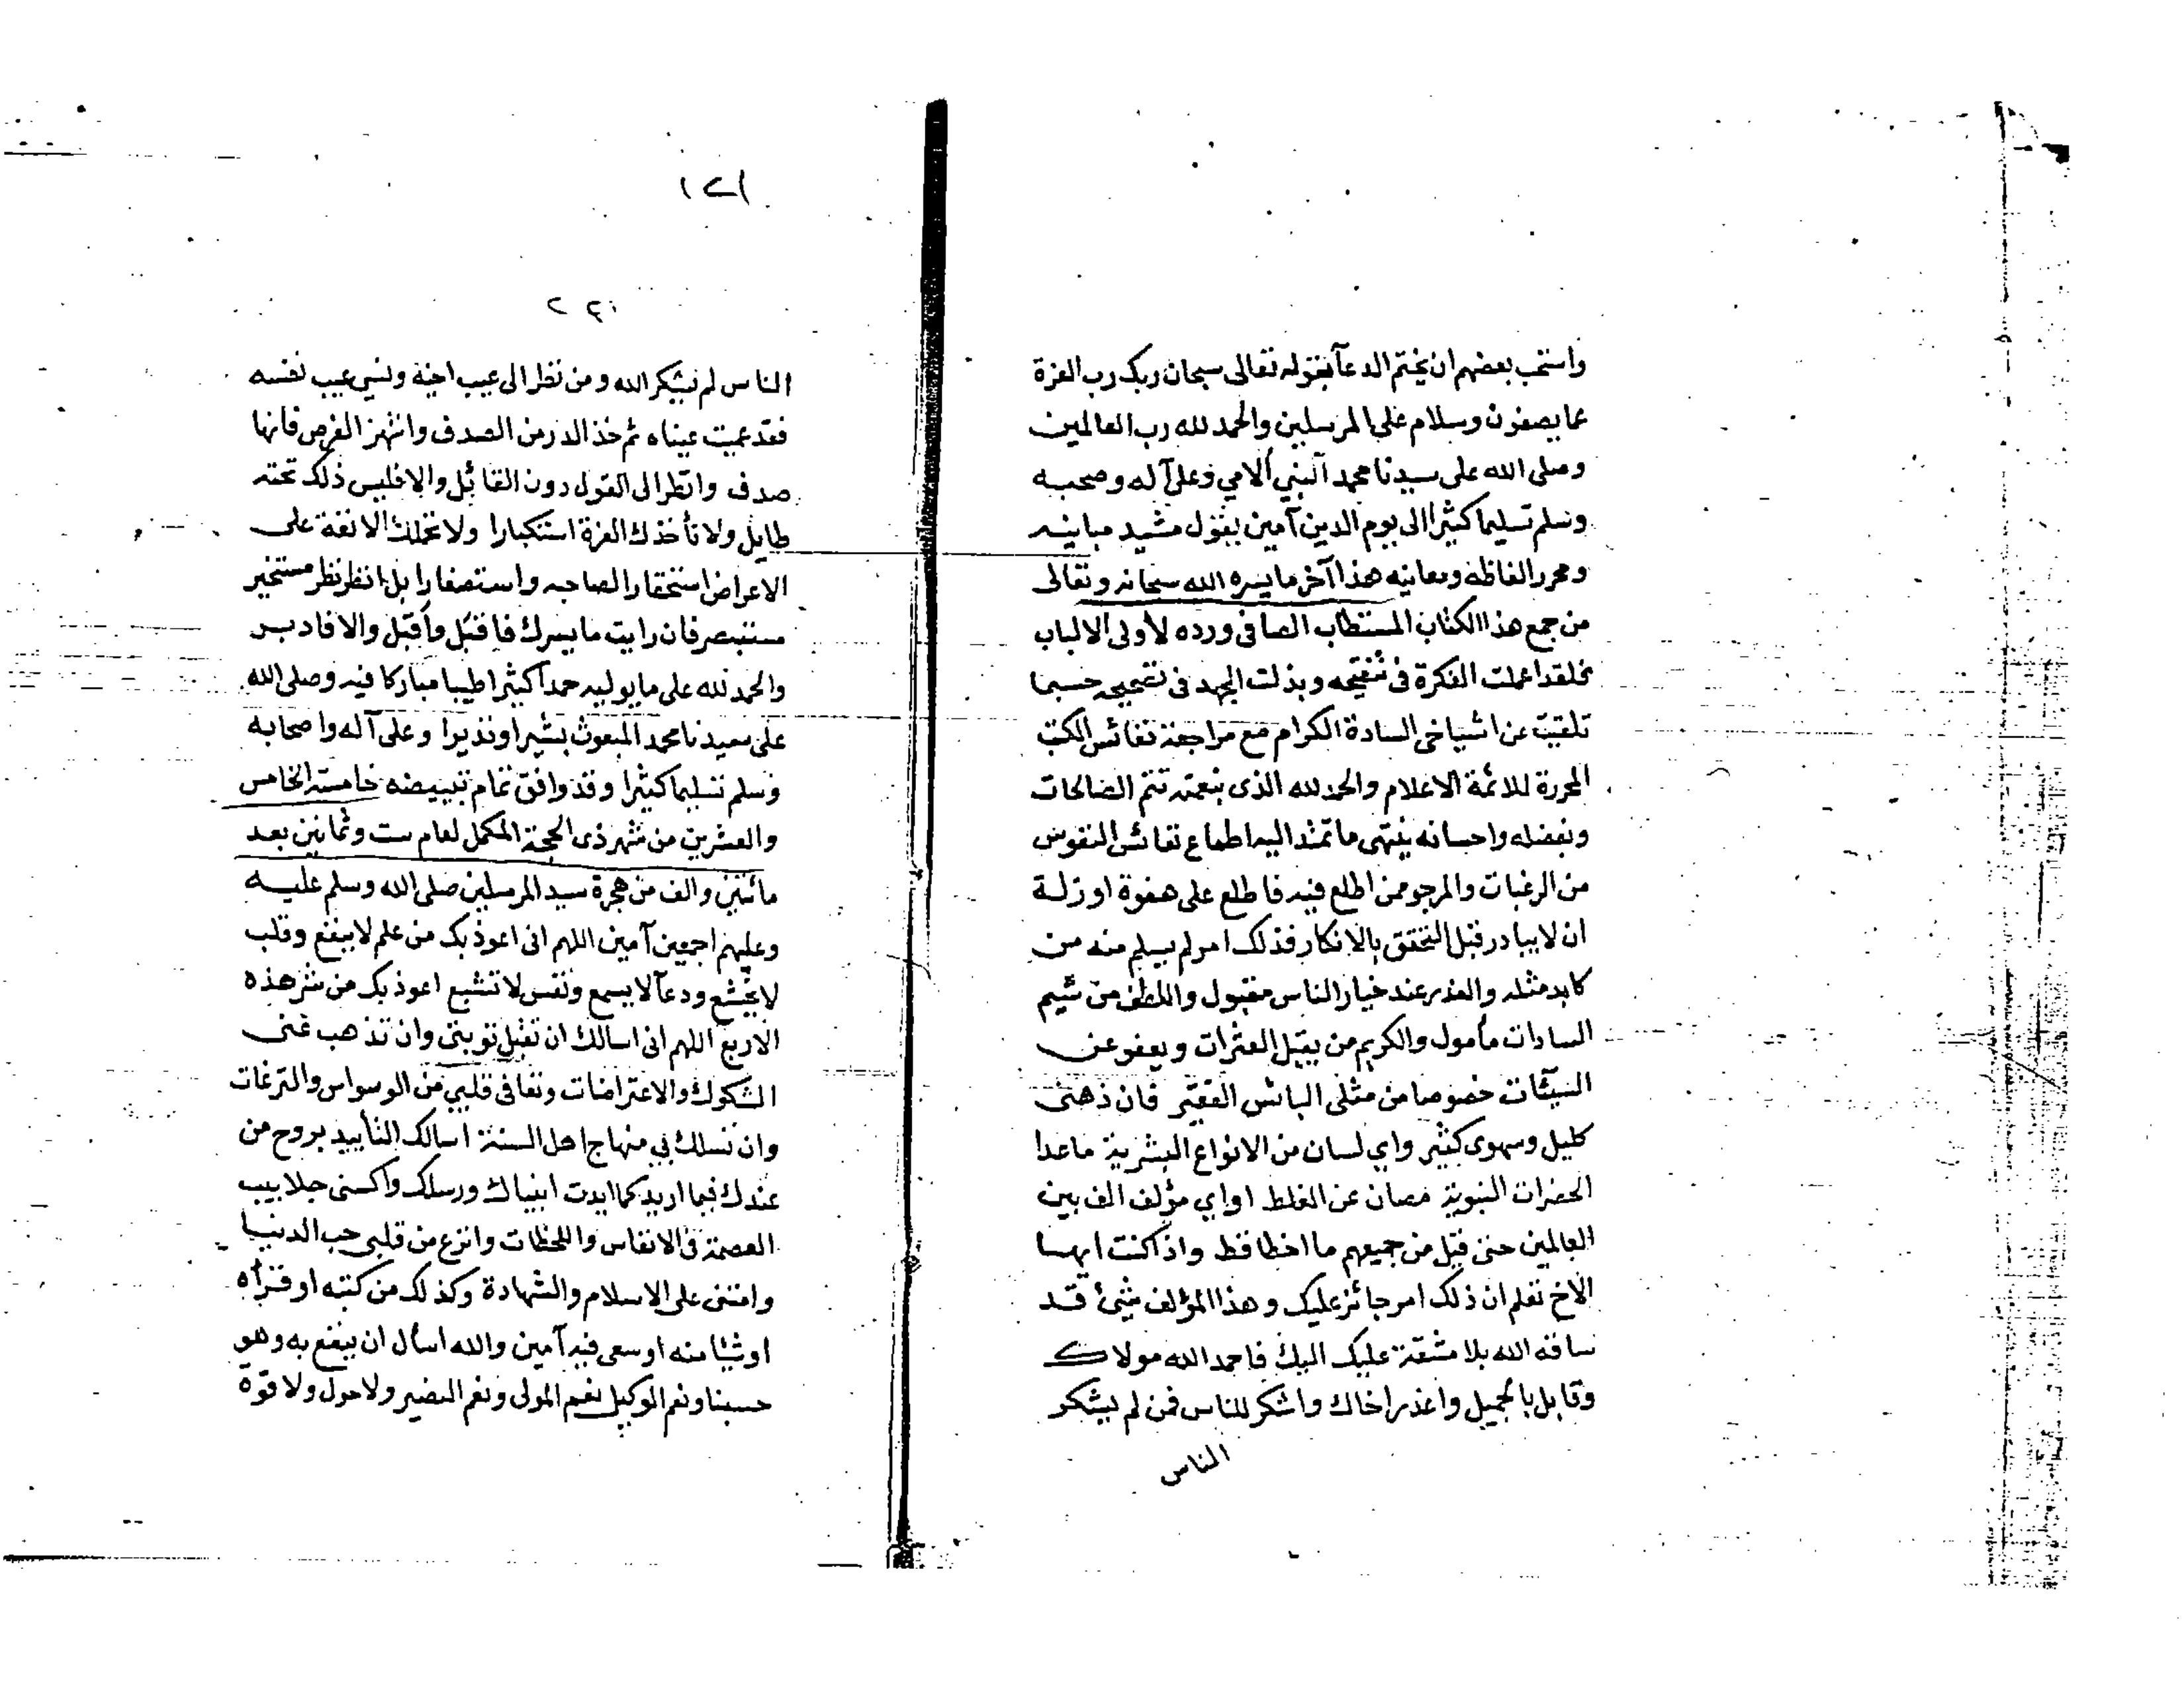 واستحب بعضهم ان يختم الدعآ بقوله تعالى سبحان ربك رب العزة
عما يصفون وسلام على المرسلين والحمد لله رب العالمين
وصلى الله على سيدنا محمد النبي الامي وعلى آله وصحبه
وسلم تسليما كثيرا الى يوم الدين آمين يقول مشيد مبانيه
ومحرر الفاظه ومعانيه هذا آخر ما يسره الله سبحانه وتعالى
من جمع هذا الكتاب المستطاب الصافى ورده لأولى الالباب
فلقد اعملت الفكرة فى تنقيحه وبذلت الجهد فى تصحيحه حسبما
تلقيت عن اشياخى السادة الكرام مع مراجعة نفائس الكتب
المحررة للائمة الاعلام والحمد لله الذى بنعمته تتم الصالحات
وبفضله واحسانه ينتهى ما تمتد اليه اطماع نفائس النفوس
من الرغبات والمرجو ممن اطلع فيه فاطلع على هفوة او زلة
ان لا يبادر قبل التحقق بالانكار فذلك امر لم يسلم منه من
كابد مثله والعذر عند خيار الناس مقبول واللطف من شيم
السادات مأمول والكريم من يقبل العثرات ويعفو عن
السيئات خصوصا من مثلى البائس الفقير فان ذهنى
كليل وسهوى كثير واي لسان من الانواع البشرية ماعدا
الحضرات النبوية مصان عن الغلط او اي مؤلف الف بين
العالمين حتى قبل من جميعهم ما اخطا قط واذا كنت ايها
الاخ تعلم ان ذلك امر جائز عليك وهذا المؤلف شئ قد
ساقه الله بلا مشقة عليك اليك فاحمد الله مولاك
وقابل بالجميل واعذر اخاك واشكر للناس فمن لم يشكر
الناس
١٢١
٢٢٠
الناس لم يشكر الله ومن نظر الى عيب اخيه ونسي عيب نفسه
فقد عميت عيناه ثم خذ الدر من الصدف وانتهز الفرص فانها
صدف وانظر الى القول دون القائل والا فليس ذلك تحته
طايل ولا تأخذك العزة استكبارا ولا تحملك الانفة على
الاعراض استحقارا لصاحبه واستصغارا بل انظر نظر مستخير
مستبصر فان رايت ما يسرك فاقبل وأقبل والا فادبر
والحمد لله على ما يوليه حمدا كثيرا طيبا مباركا فيه وصلى الله
على سيدنا محمد المبعوث بشيرا ونذيرا وعلى آله واصحابه
وسلم تسليما كثيرا وقد وافق تمام تبييضه خامسة الخامس
والعشرين من شهر ذى الحجة المكمل لعام ست وثمانين بعد
مائتين والف من هجرة سيد المرسلين صلى الله وسلم عليه
وعليهم اجمعين آمين اللهم انى اعوذ بك من علم لا ينفع وقلب
لا يخشع ودعآ لا يسمع ونفس لا تشبع اعوذ بك من شر هذه
الاربع اللهم انى اسالك ان تقبل توبتى وان تذهب عنى
الشكوك والاعتراضات وتعافى قلبي من الوسواس والنزغات
وان تسلك بي منهاج اهل السنة اسالك التأييد بروح من
عندك فيما اريد كما ايدت انبياك ورسلك واكسنى جلابيب
العصمة فى الانفاس واللحظات وانزع من قلبى حب الدنيا
وامتنى على الاسلام والشهادة وكذلك من كتبه او قرأه
او شيا منه او سعى فيه آمين والله اسأل ان ينفع به وهو
حسبنا ونعم الوكيل نعم المولى ونعم النصير ولا حول ولا قوة